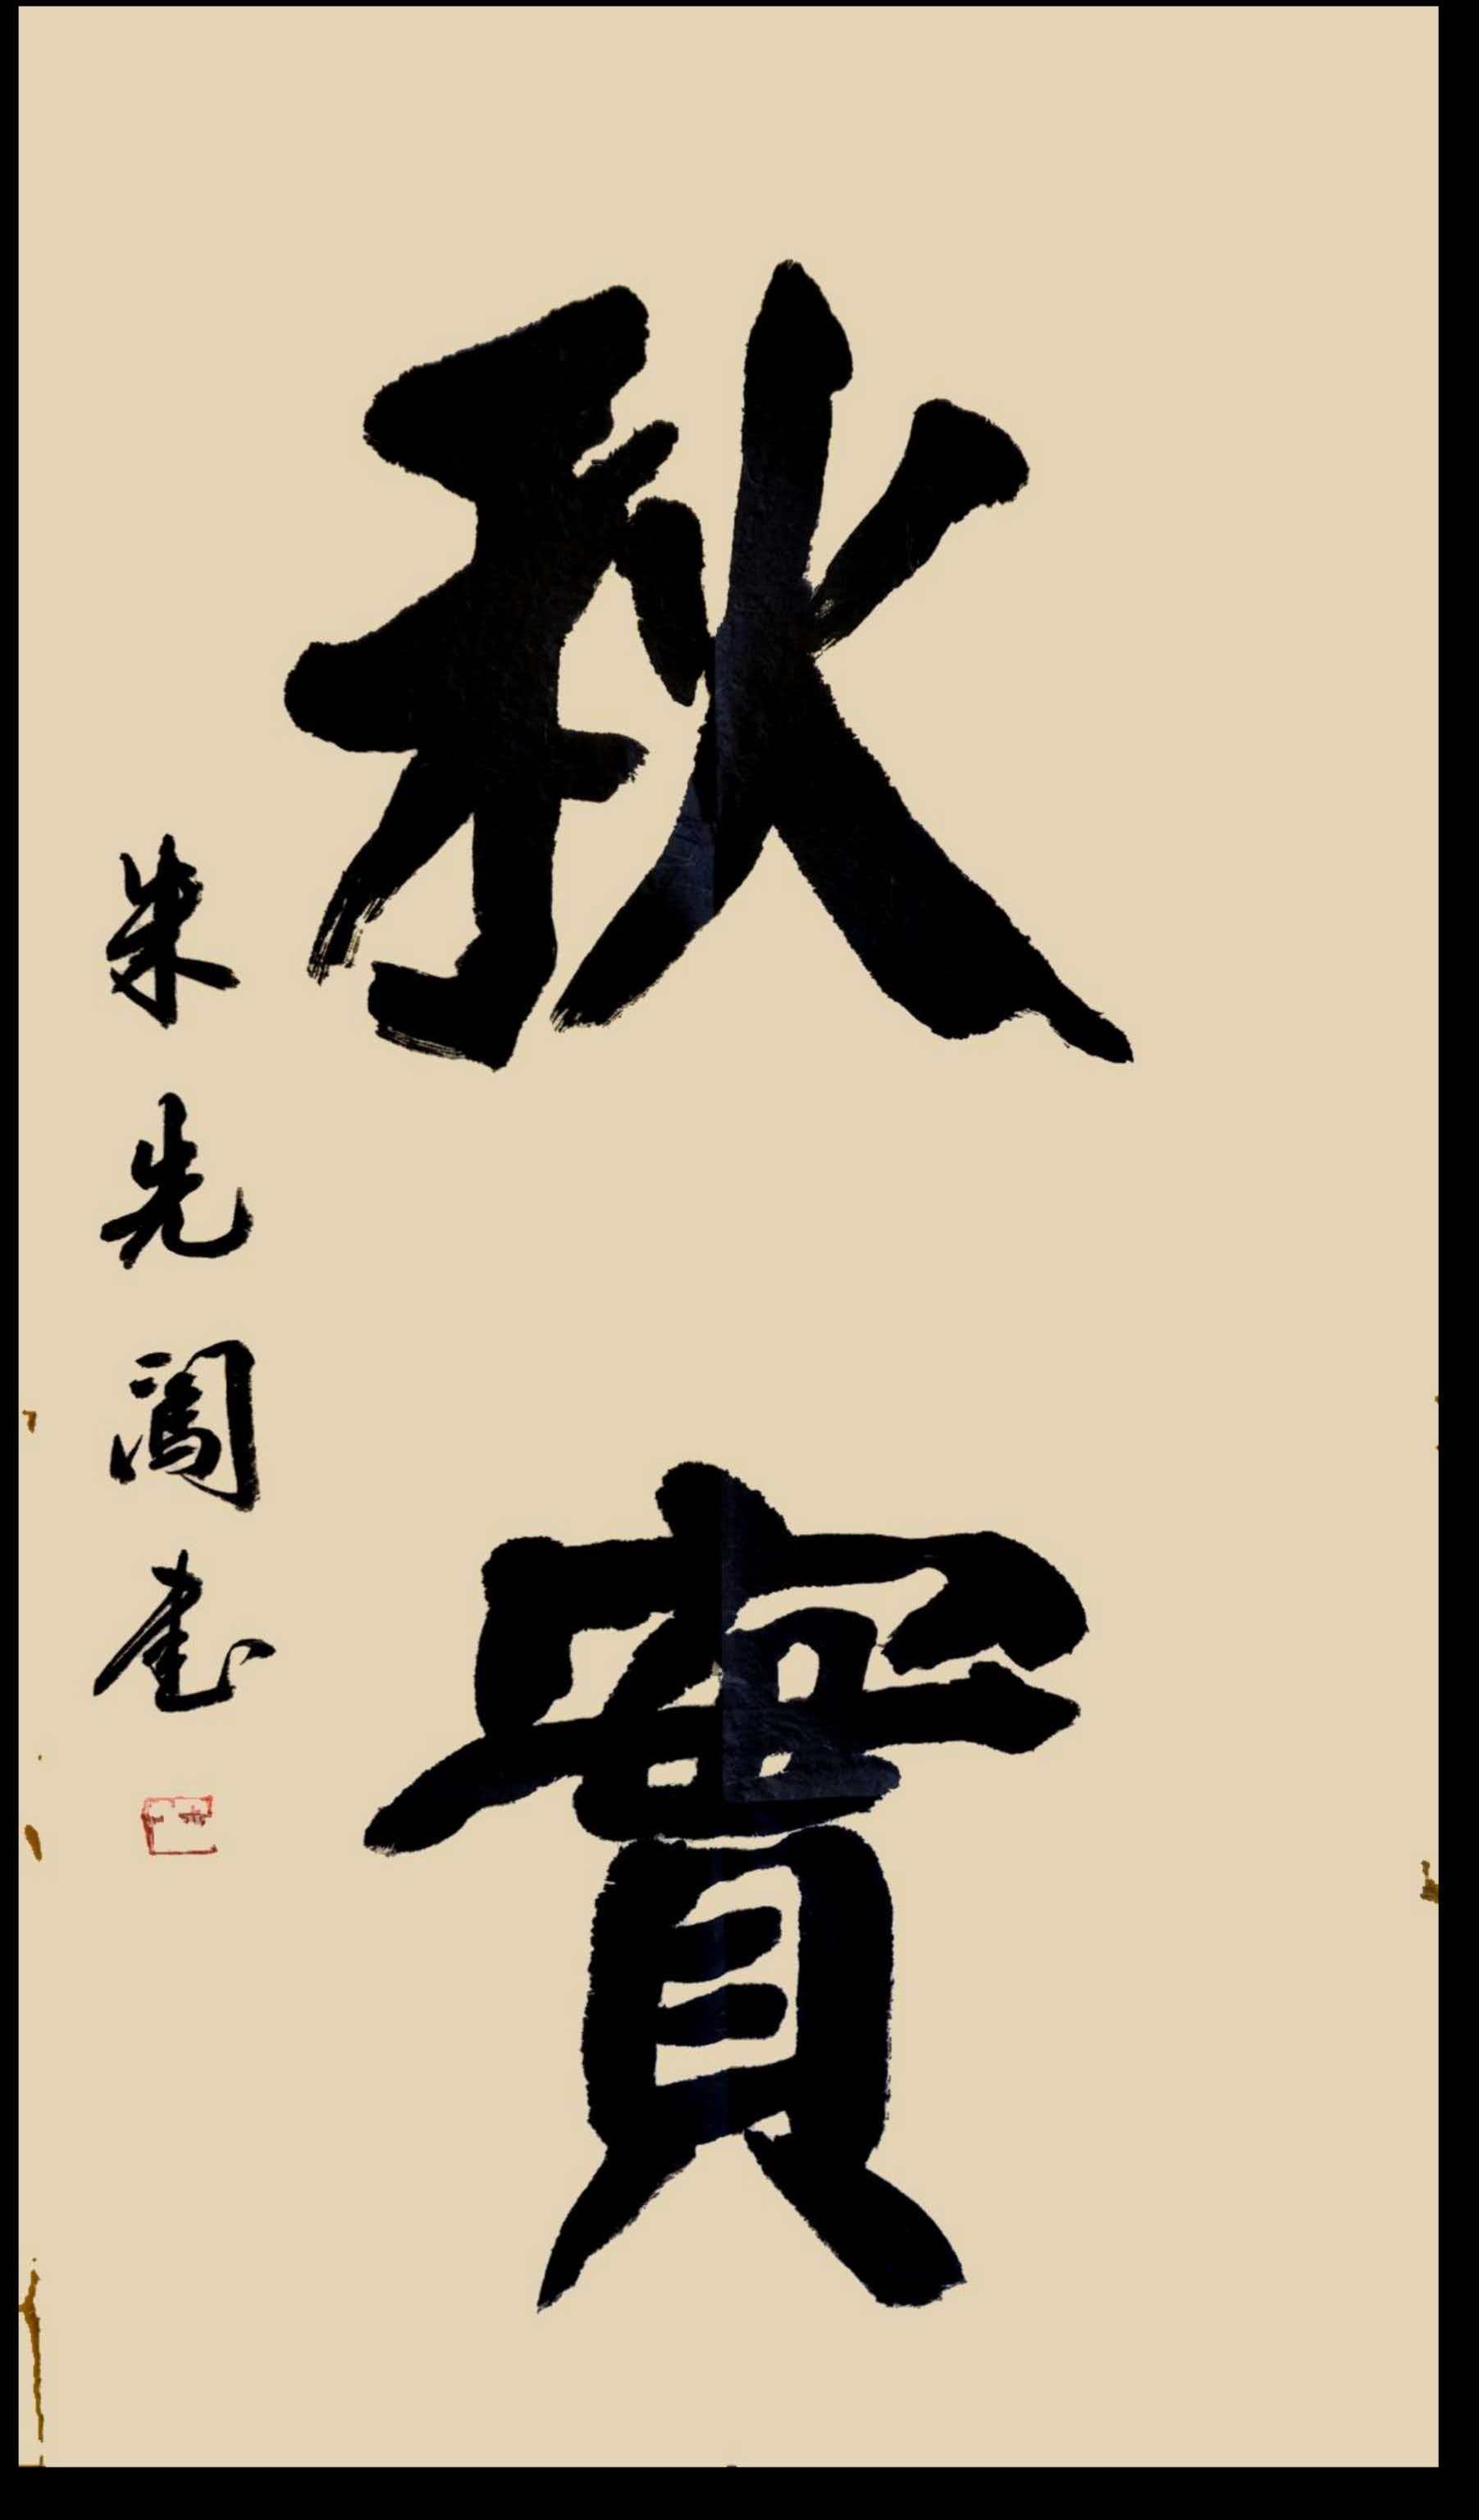 秋實
朱先闖書